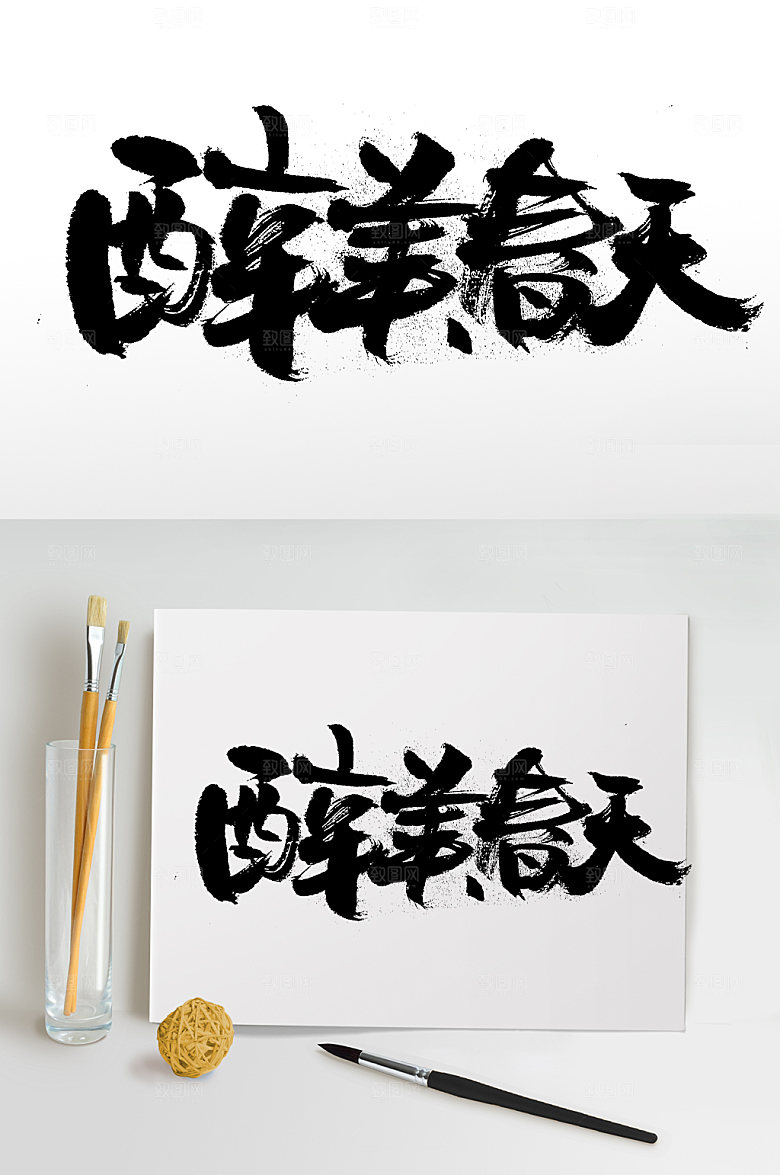 醉美春天
醉美春天